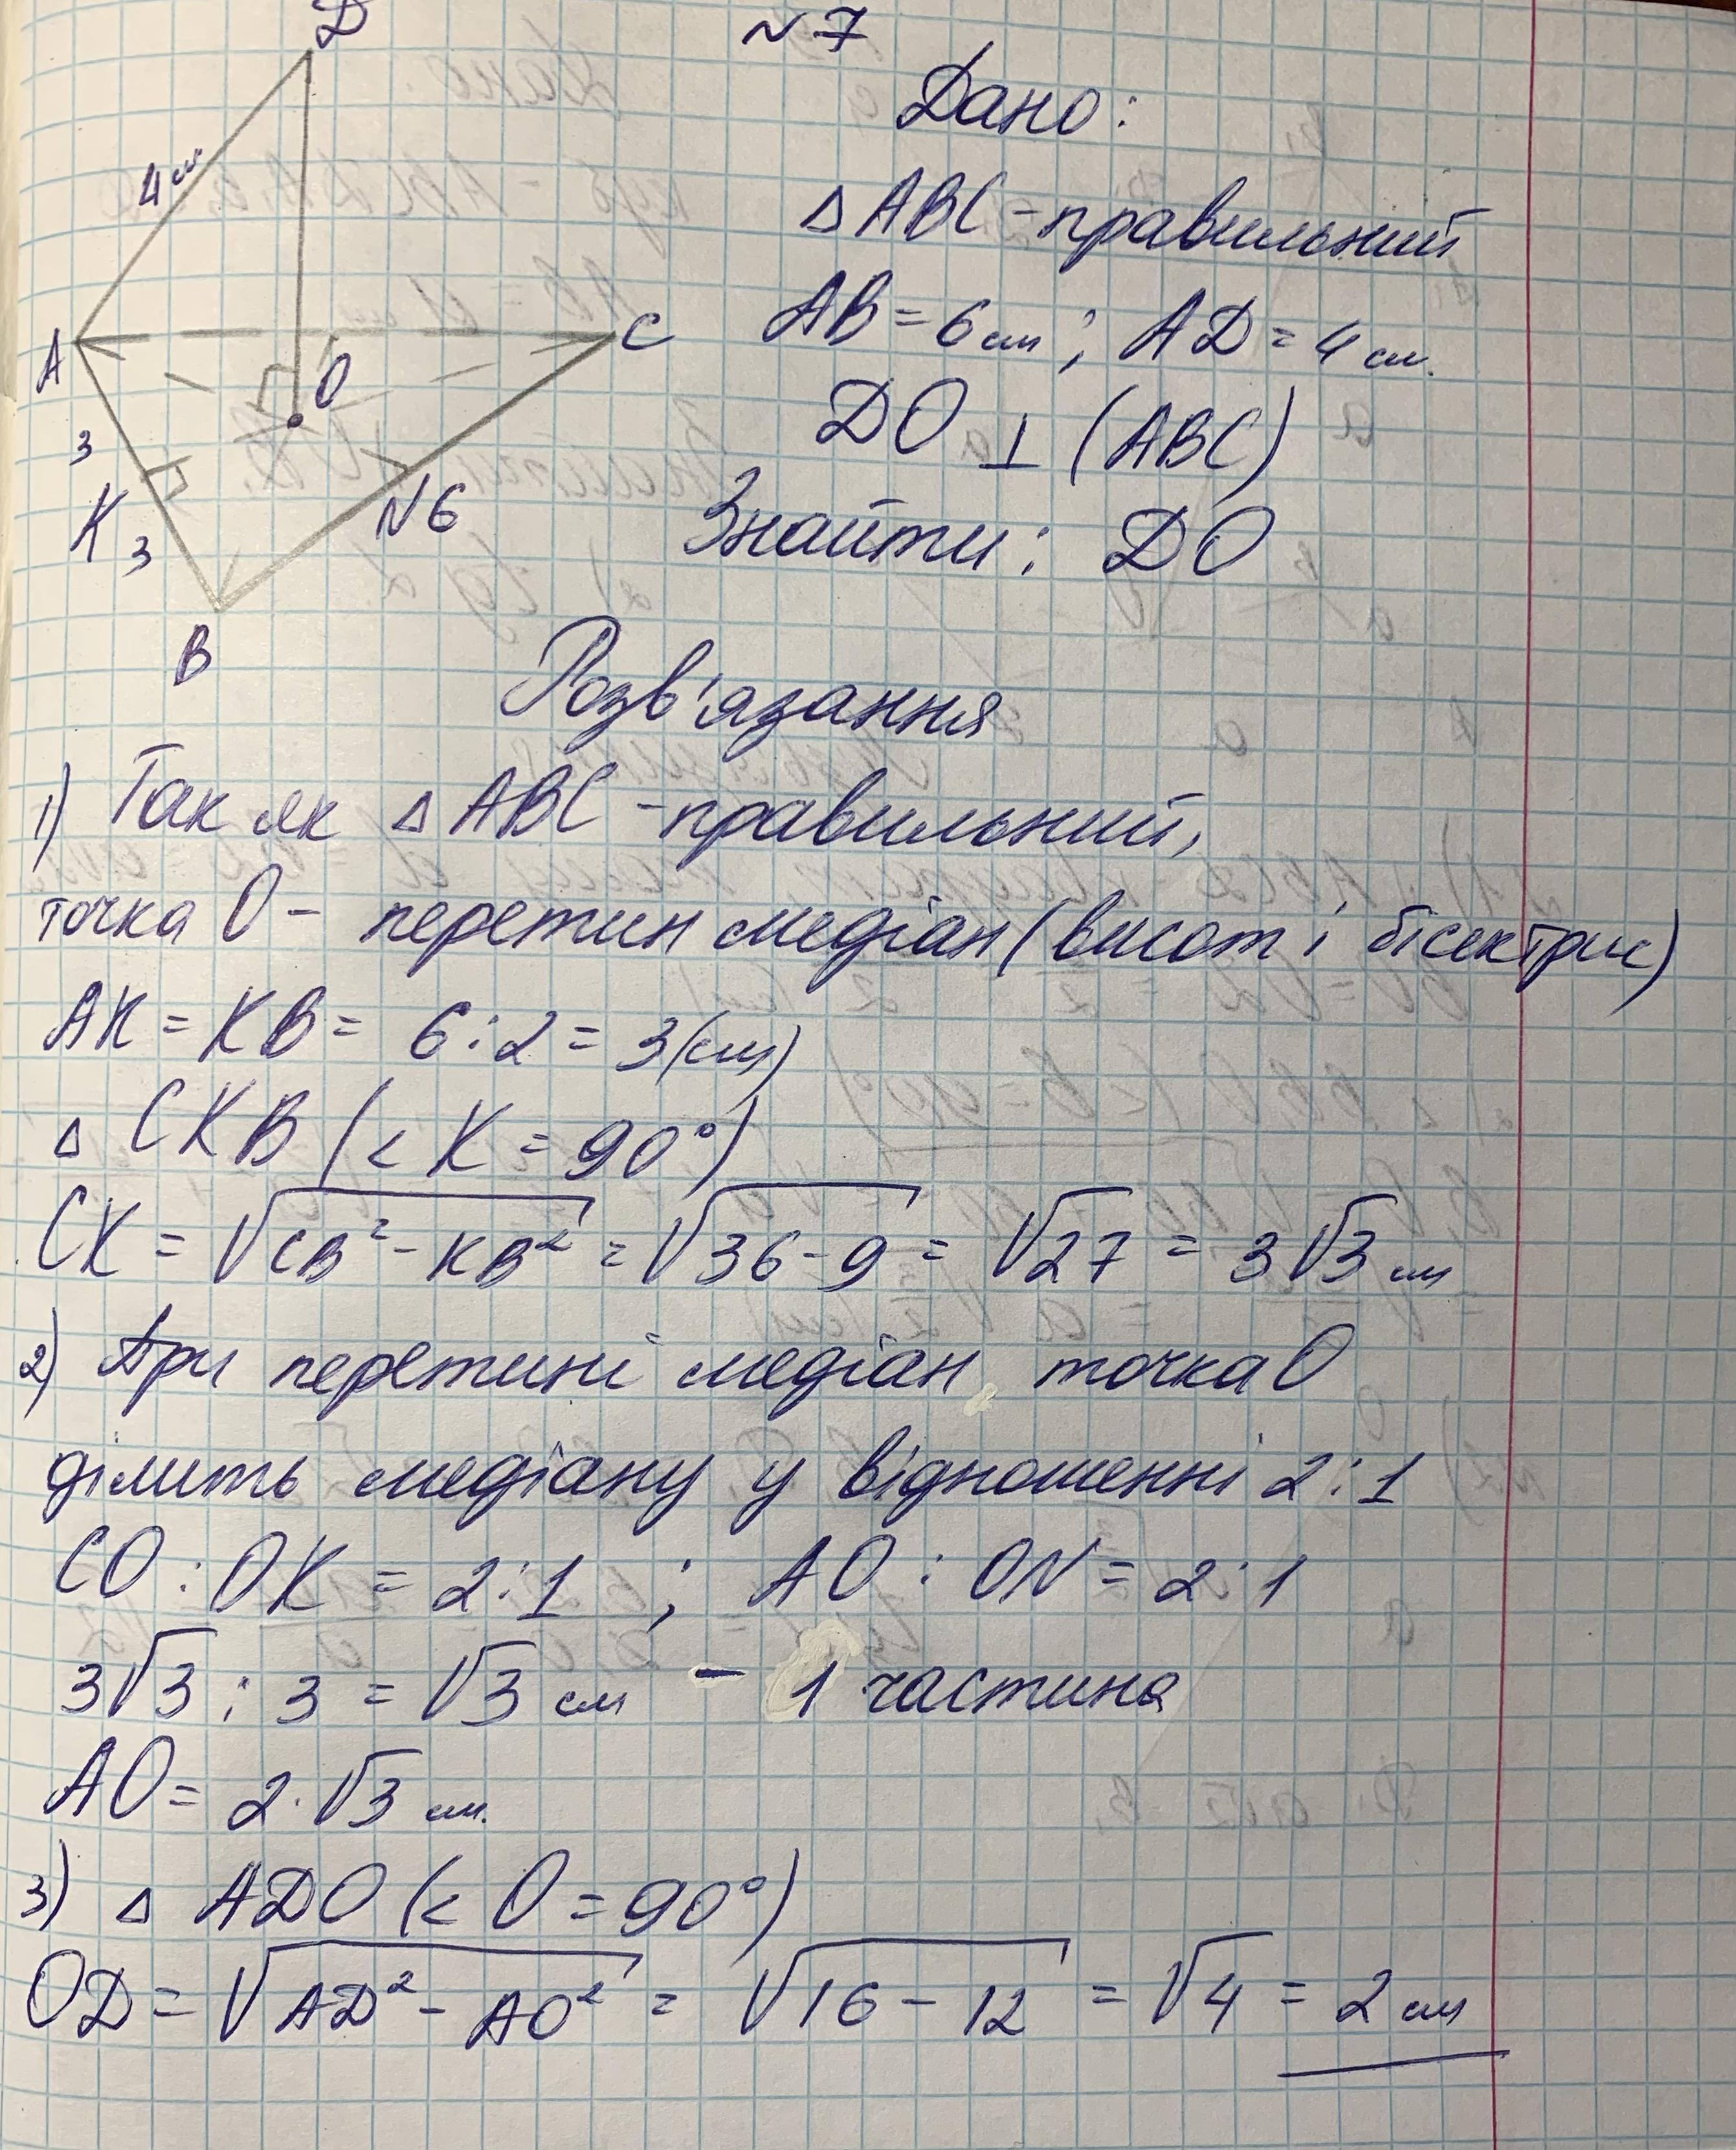 N 7
D
Дано:
4 см
△ ABC - правильний
A
C
AB = 6 см ; AD = 4 см.
O
DO ⊥ (ABC)
3
K
N 6
3
Знайти : DO
B
Розв'язання
1) Так як △ ABC - правильний,
точка O - перетин медіан (висот і бісектрис)
AK = KB = 6 : 2 = 3 (см)
△ CKB (< K = 90°)
CK = √CB² - KB² = √36 - 9 = √27 = 3√3 см
2) При перетині медіан, точка O
ділить медіану у відношенні 2 : 1
CO : OK = 2 : 1 ; AO : ON = 2 : 1
3√3 : 3 = √3 см - 1 частина
AO = 2 · √3 см.
3) △ ADO (< O = 90°)
OD = √AD² - AO² = √16 - 12 = √4 = 2 см